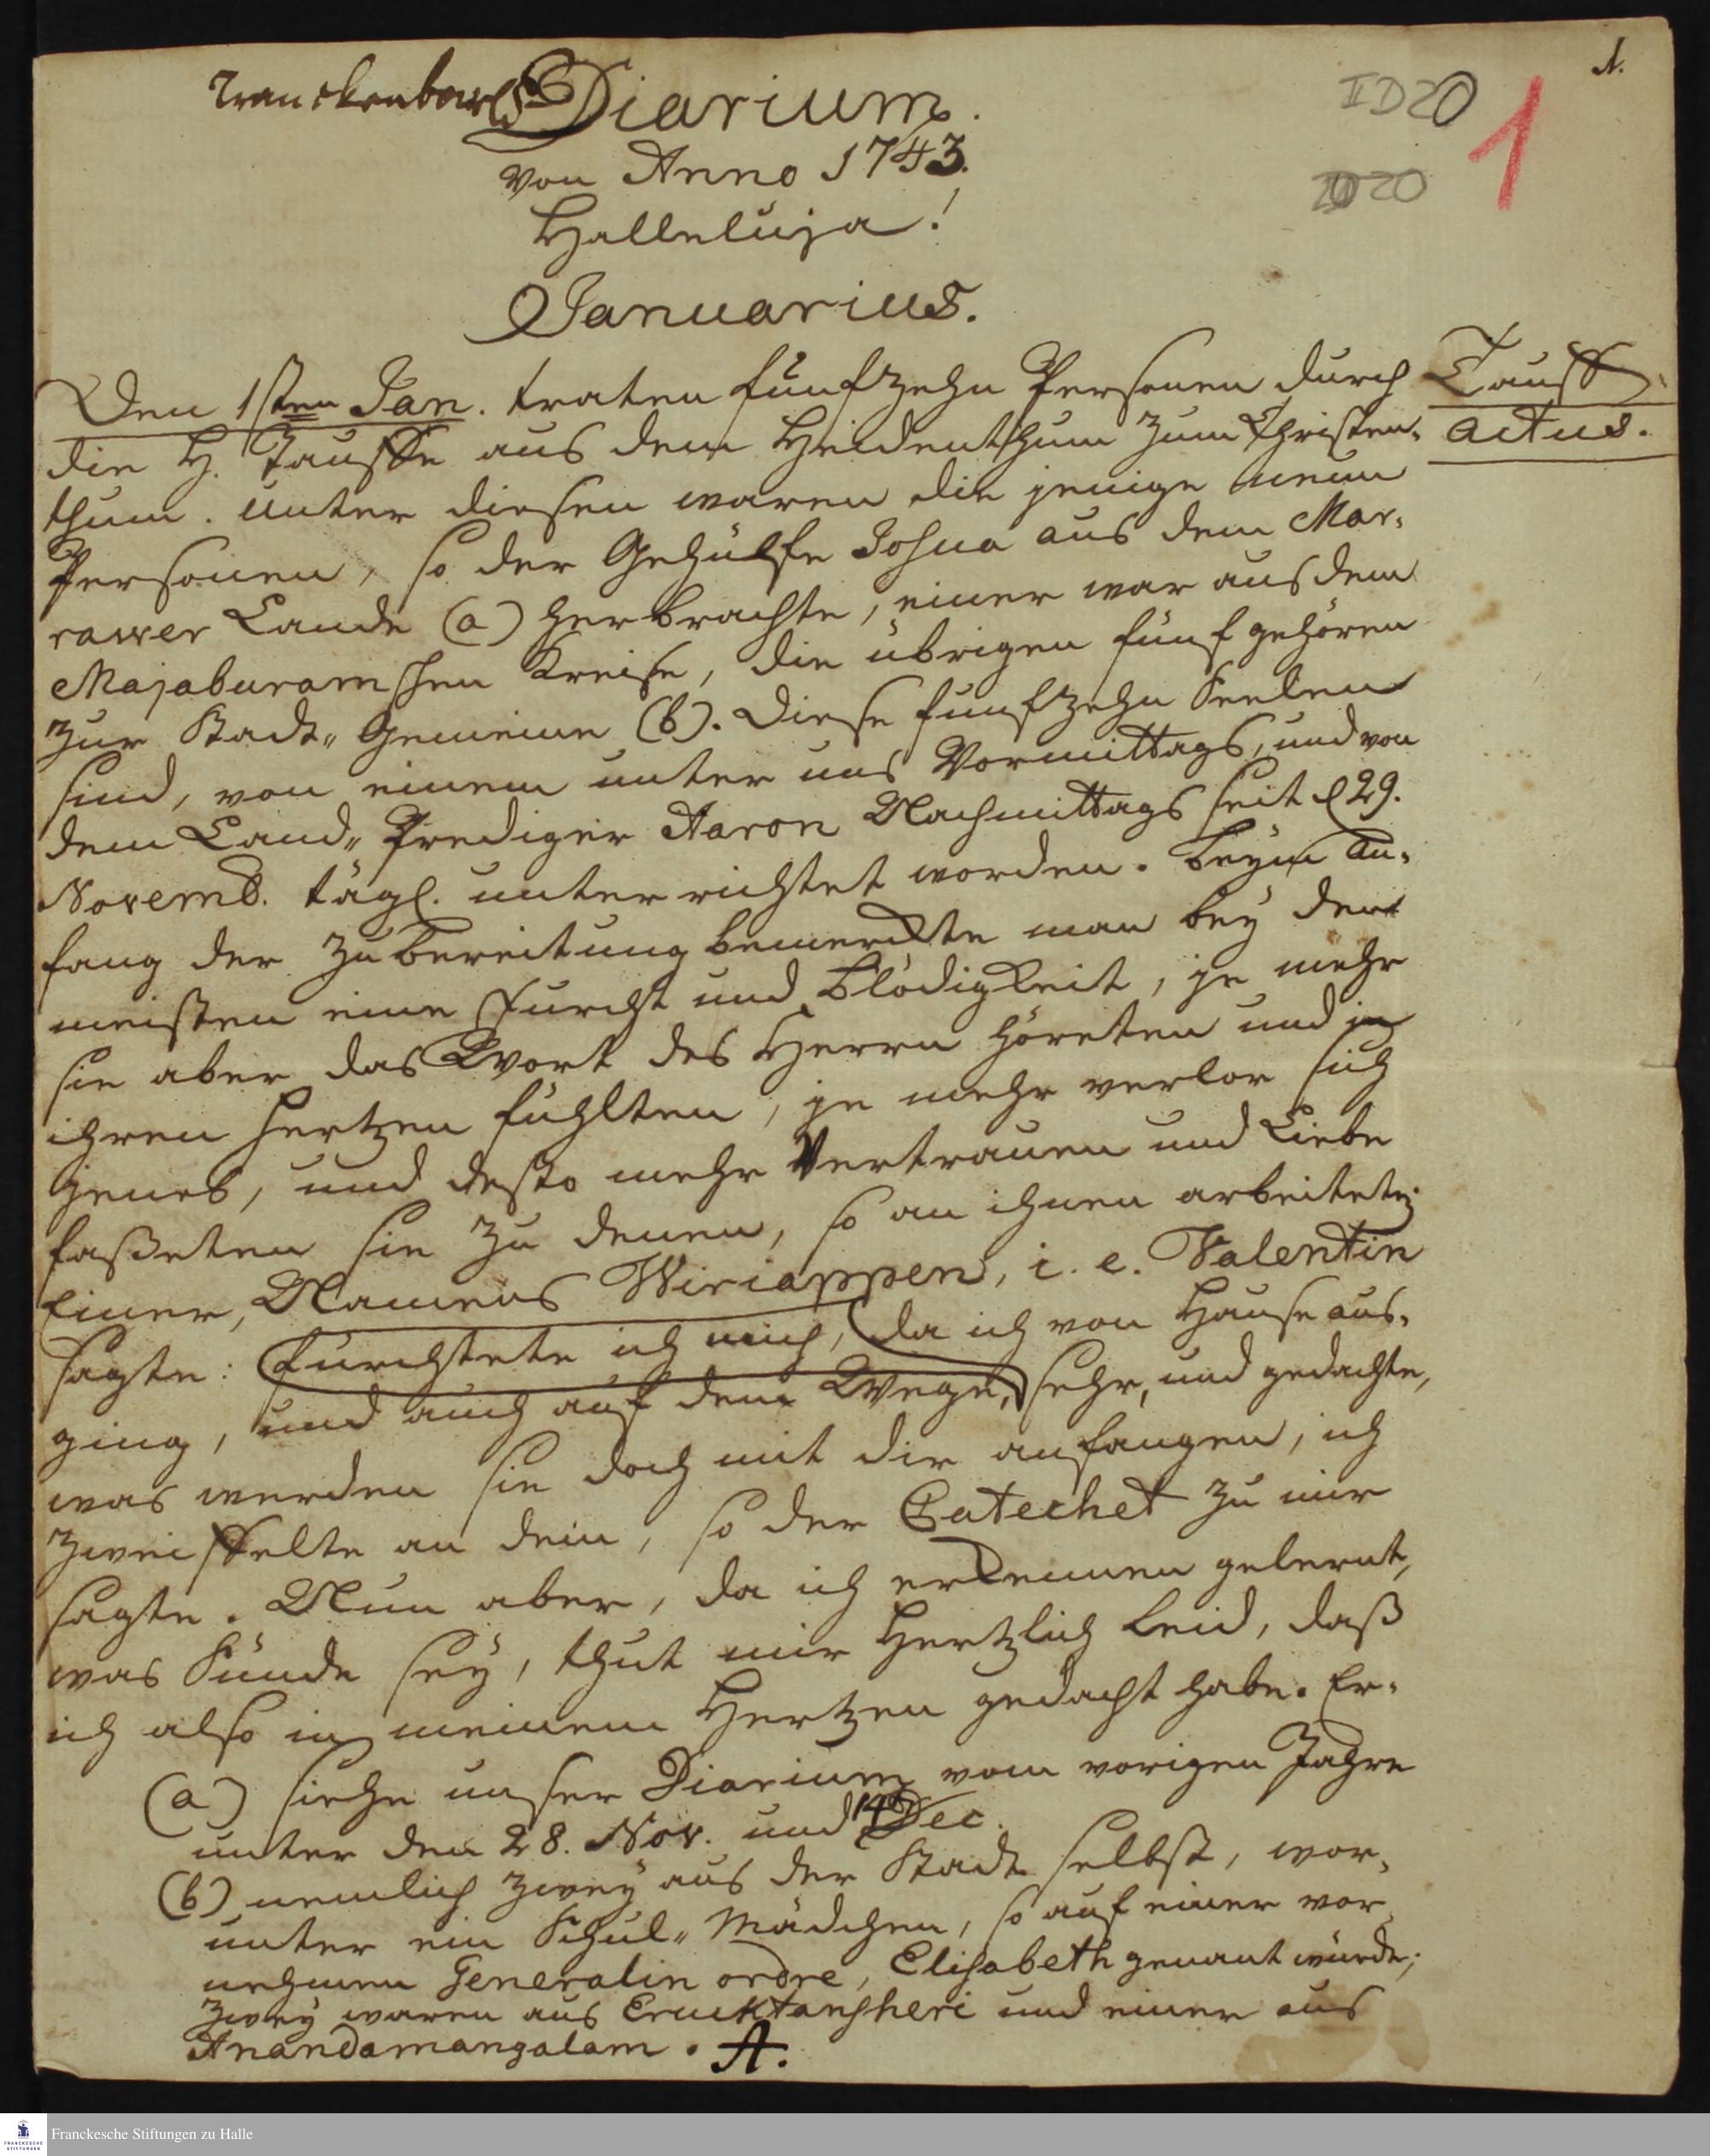 Tranckenbars Diarium.
von Anno 1743.
Halleluja!
Januarius.
1.
ID20
1
20
Den 1sten Jan. traten funfzehn Personen durch
die H. Tauffe aus dem Heidenthum zum Christen-
thum. Unter diesen waren die jenige neun
Personen, so der Gehülfe Josua aus dem Mar-
rawer Lande (a) herbrachte, einer war aus dem
Majaburamschen Kreise, die übrigen fünf gehören
zur Stadt-Gemeine (b). Diese funfzehn Seelen
sind, von einem unter uns Vormittags, und von
dem Land-Prediger Aaron Nachmittags seit d 29.
Novemb. tägl. unterrichtet worden. Beym An-
fang der Zubereitung bemerckte man bey den
meisten eine Furcht und Blödigkeit, je mehr
sie aber das Wort des Herrn höreten und in
ihren Hertzen fühlten, je mehr verlor sich
jenes, und desto mehr Vertrauen und Liebe
faßeten sie zu denen, so an ihnen arbeiteten.
Einer, Namens Wiriappen, i. e. Valentin
sagte: furchtete ich mich, da ich von Hause aus-
ging, und auch auf dem Wege, sehr, und gedachte,
was werden sie doch mit dir anfangen, ich
zweiffelte an dem, so der Catechet zu mir
sagte. Nun aber, da ich erkennen gelernt,
was Sünde sey, thut mir Hertzlich leid, daß
ich also in meinem Hertzen gedacht habe. Er-
Tauff
actus.
(a) siehe unser Diarium vom vorigen Jahre
unter den 28. Nov. und 14 Dec.
(b) nemlich zwey aus der Stadt selbst, wor-
unter ein Schul-Mädchen, so auf einer vor
nehmen Generalin ordre, Elisabeth genant wurde;
zwey waren aus Erucktanscheri und einer aus
Anandamangalam. A.
FRANCKESCHE STIFTUNGEN
Franckesche Stiftungen zu Halle